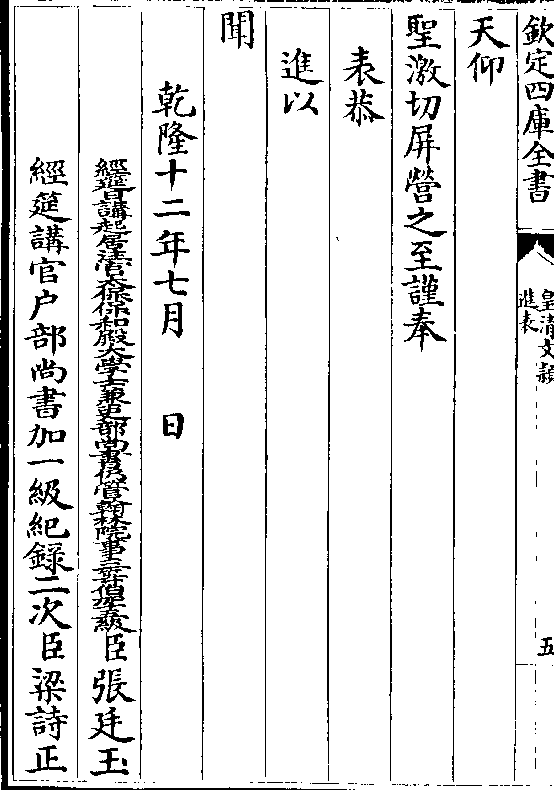 欽定四庫全書
皇清文穎
進表
五
天仰
聖激切屏營之至謹奉
表恭
進以
聞
乾隆十二年七月 日
經筵日講起居注官太保保和殿大學士兼吏部尚書仍管翰林院事三等伯級臣張廷玉
經筵講官户部尚書加一級紀錄二次臣梁詩正